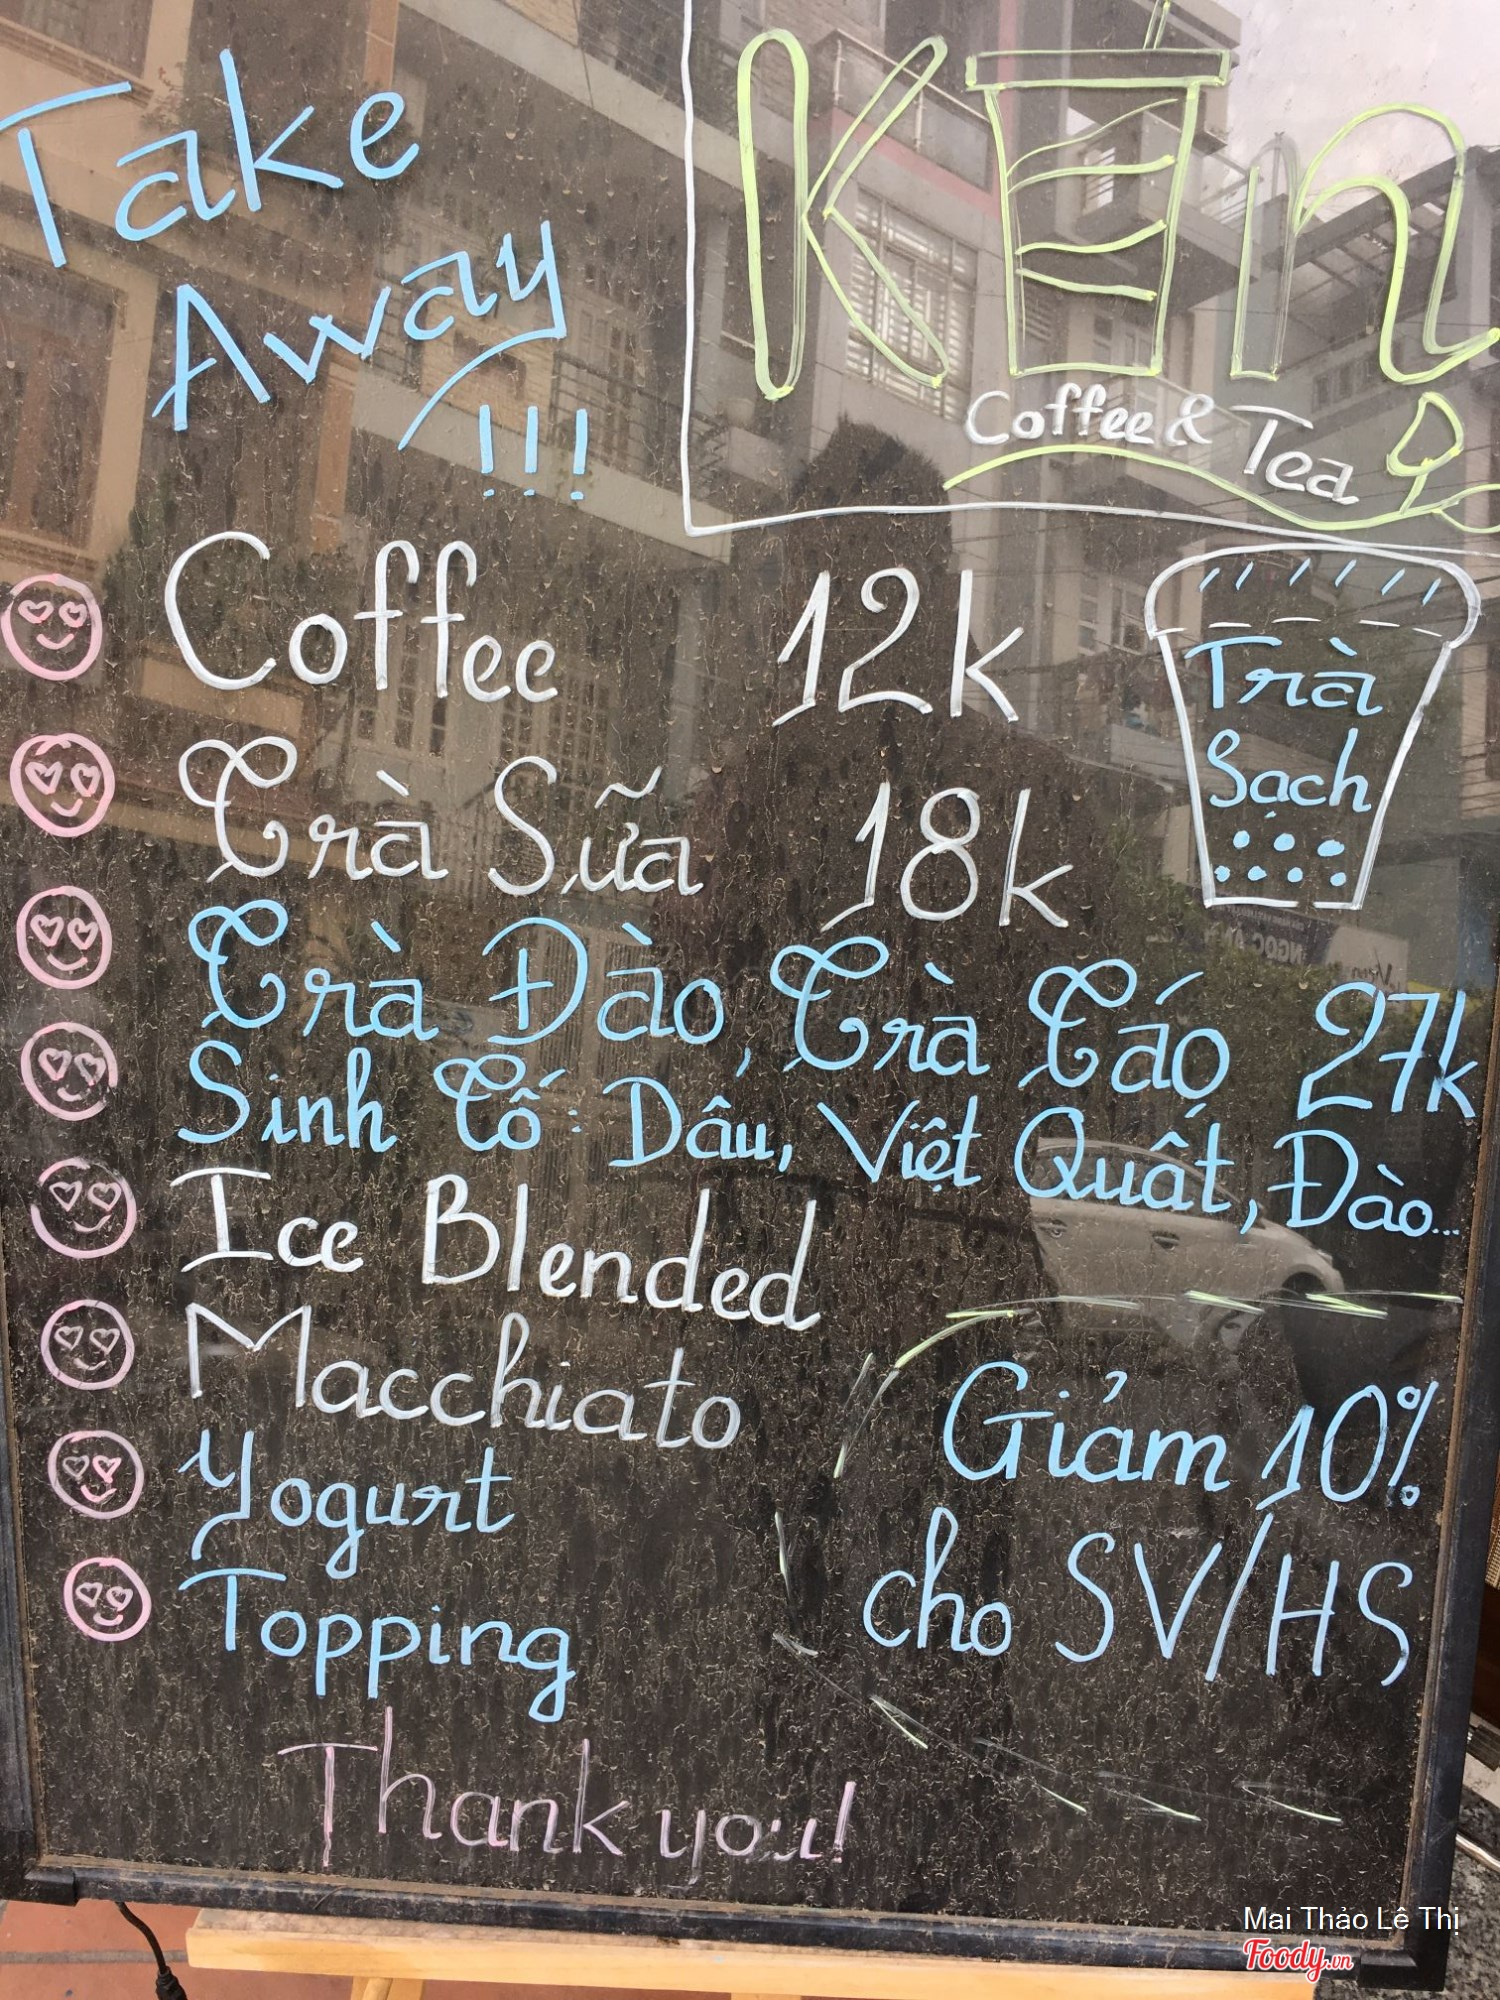 Take
Away
!!!
KEn
Coffee & Tea
Coffee 12k
Trà Sữa 18k
Trà
Sạch
Trà Đào, Trà Táo 27k
Sinh Tố: Dâu, Việt Quất, Đào...
Ice Blended
Macchiato
Yogurt
Topping
Giảm 10%
cho SV/HS
Thank you!
Mai Thảo Lê Thị
Foody.vn